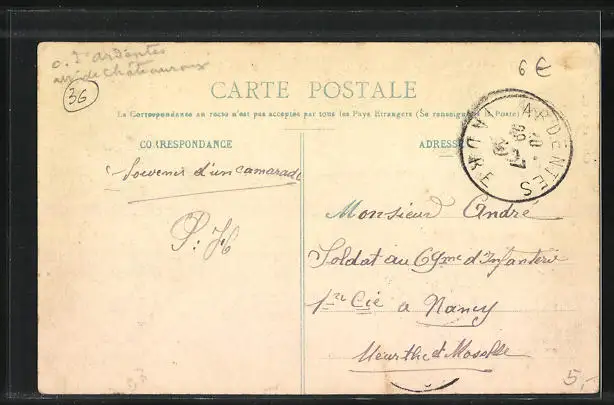 O. T. d'ardentes
36
6 €
CARTE POSTALE
La Correspondance au recto n'est pas acceptée par tous les Pays Étrangers (Se renseigner à la Poste)
CORRESPONDANCE
ADRESSE
ARDENTES
INDRE
Souvenir d'un camarade
P. H
Monsieur André
Soldat au 69me d'Infanterie
1re Cie a Nancy
Meurthe et Moselle
5,-